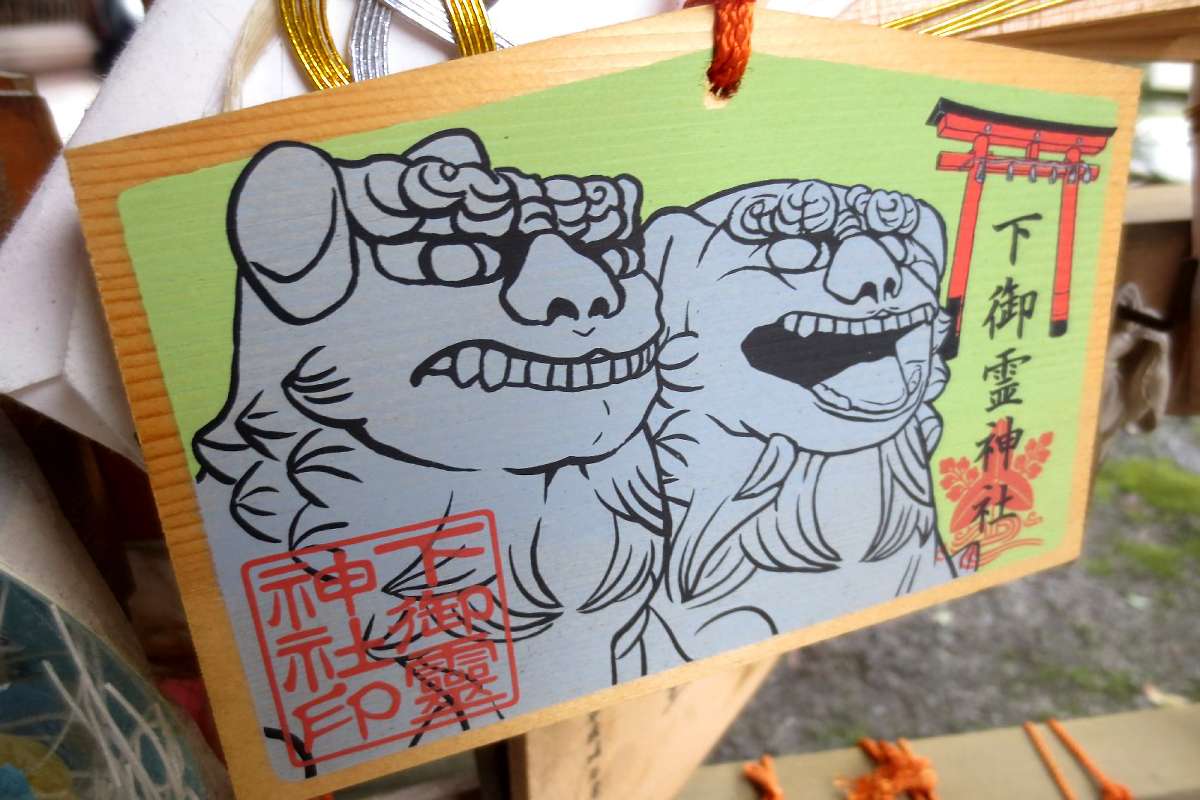 下御霊神社
下御靈
神社印